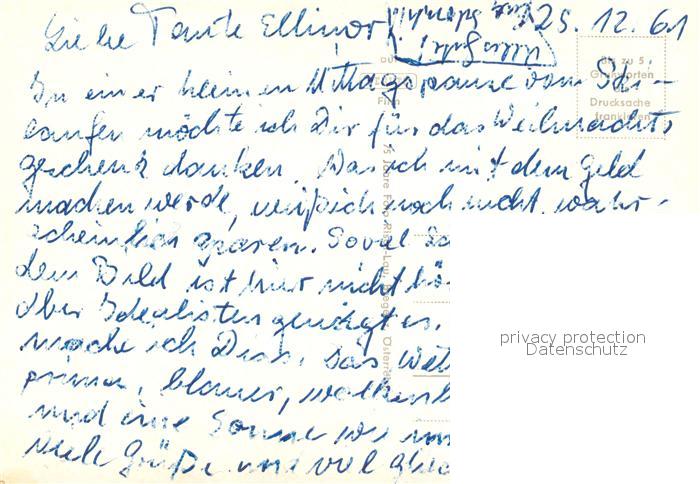 Liebe Tante Ellinor 25.12.61
Alles Gute!
In einer kleinen Mittagspause vom Ski-
laufen möchte ich Dir für das Weihnachts
geschenk danken. Was ich mit dem Geld
machen werde, weiß ich noch nicht, wahr-
scheinlich sparen. Soviel
dem Bild ist hier nicht
aber Idealisten genügt es.
ich Dir. Das
prima, blauer,
und eine Sonne wie
viele Grüße und viel
Bis zu 5
Grußworten
Drucksache
frankieren
Film
75 Jahre Foto
privacy protection
Datenschutz